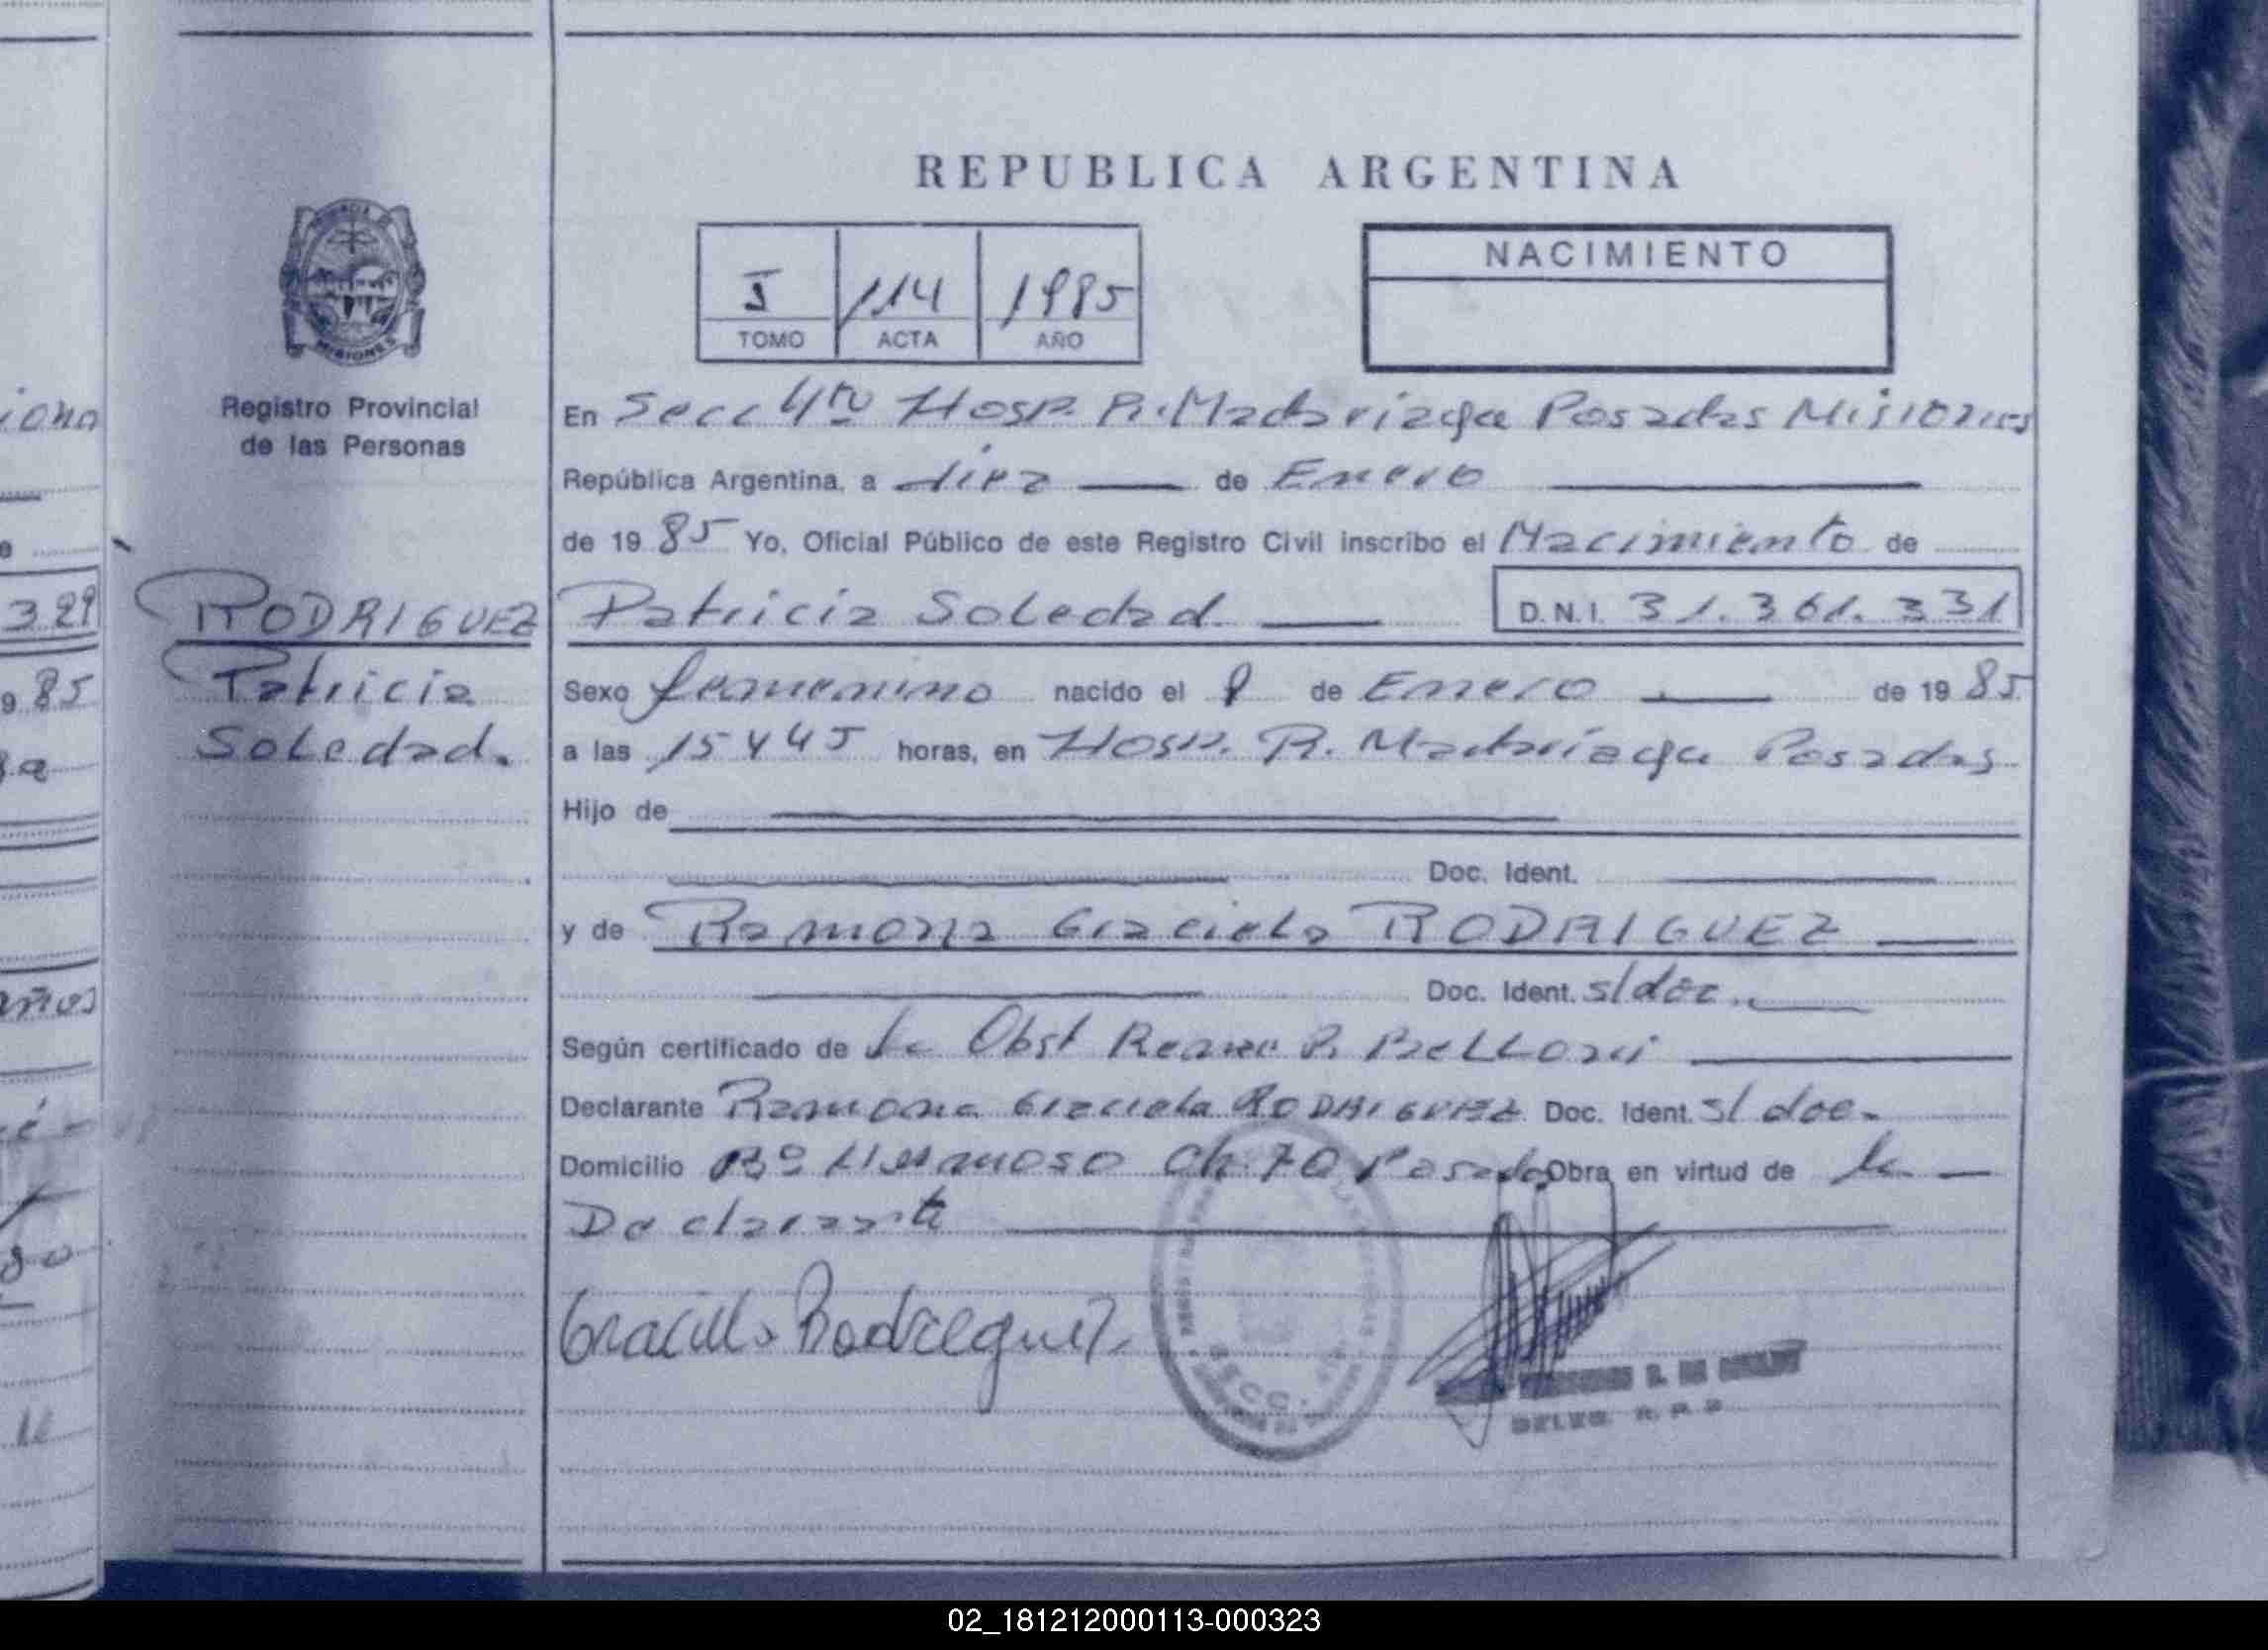 REPUBLICA ARGENTINA
I 114 1985
TOMO ACTA AÑO
NACIMIENTO
MISIONES
Registro Provincial
de las Personas
RODRIGUEZ
Patricia
Soledad.
En Secc 4ta Hosp. R. Madariaga Posadas Misiones
República Argentina, a diez de Enero
de 1985 Yo, Oficial Público de este Registro Civil inscribo el Nacimiento de
Patricia Soledad D.N.I. 31.361.331
Sexo femenino nacido el de Enero de 1985
a las 15 y 45 horas, en Hosp. R. Madariaga Posadas
Hijo de
Doc. Ident.
y de Ramona Graciela RODRIGUEZ
Doc. Ident. s/doc.
Según certificado de la Obst
Declarante Ramona Graciela RODRIGUEZ Doc. Ident. s/doc.
Domicilio Bº Ch. 70 Posadas Obra en virtud de la
Declarante
Graciela Rodriguez
SECC.
DELEG. R. P. P.
329
85
años
02_181212000113-000323